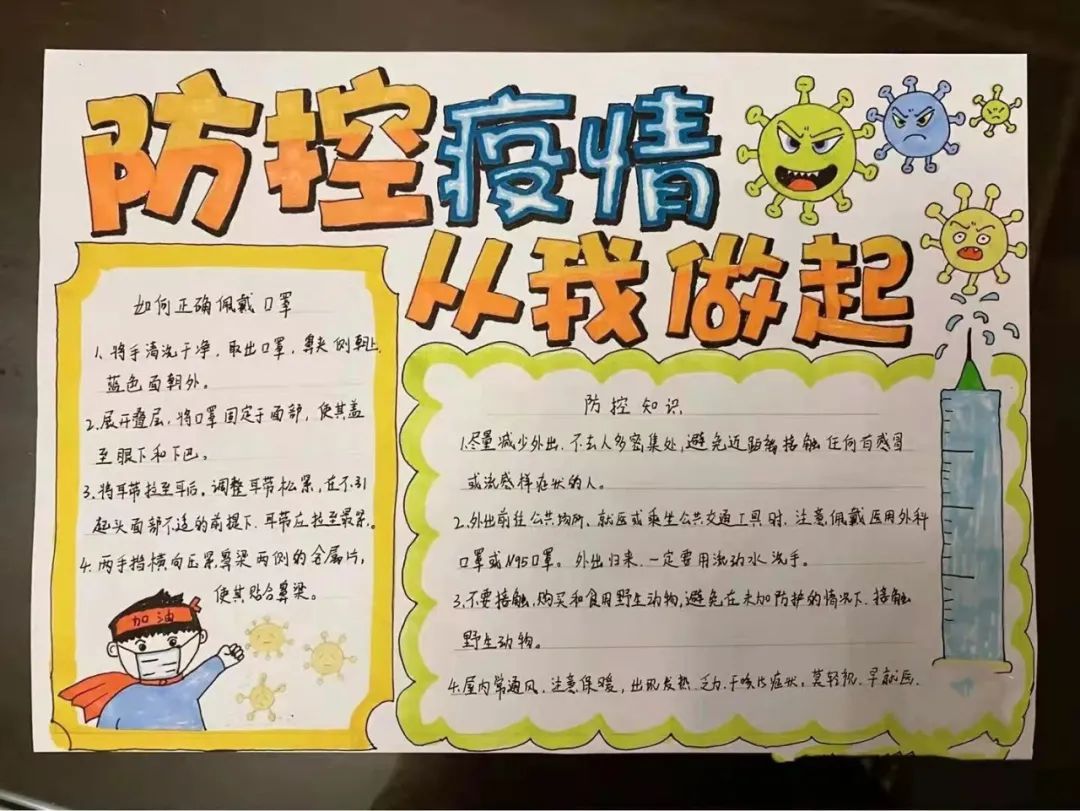 防控疫情
从我做起
如何正确佩戴口罩
1、将手清洗干净，取出口罩，鼻夹侧朝上，
蓝色面朝外。
2.展开叠层，将口罩固定于面部，使其盖
至眼下和下巴。
3.将耳带拉至耳后，调整耳带松紧，在不引
起头面部不适的前提下，耳带应拉至最紧。
4.两手指横向压紧鼻梁两侧的金属片，
使其贴合鼻梁。
加油
防控知识
1.尽量减少外出，不去人多密集处，避免近距离接触任何有感冒
或流感样症状的人。
2.外出前往公共场所、就医或乘坐公共交通工具时，注意佩戴医用外科
口罩或N95口罩。外出归来，一定要用流动水洗手。
3.不要接触，购买和食用野生动物，避免在未加防护的情况下，接触
野生动物。
4.屋内常通风，注意保暖，出现发热、乏力、干咳此症状，莫轻视，早就医.